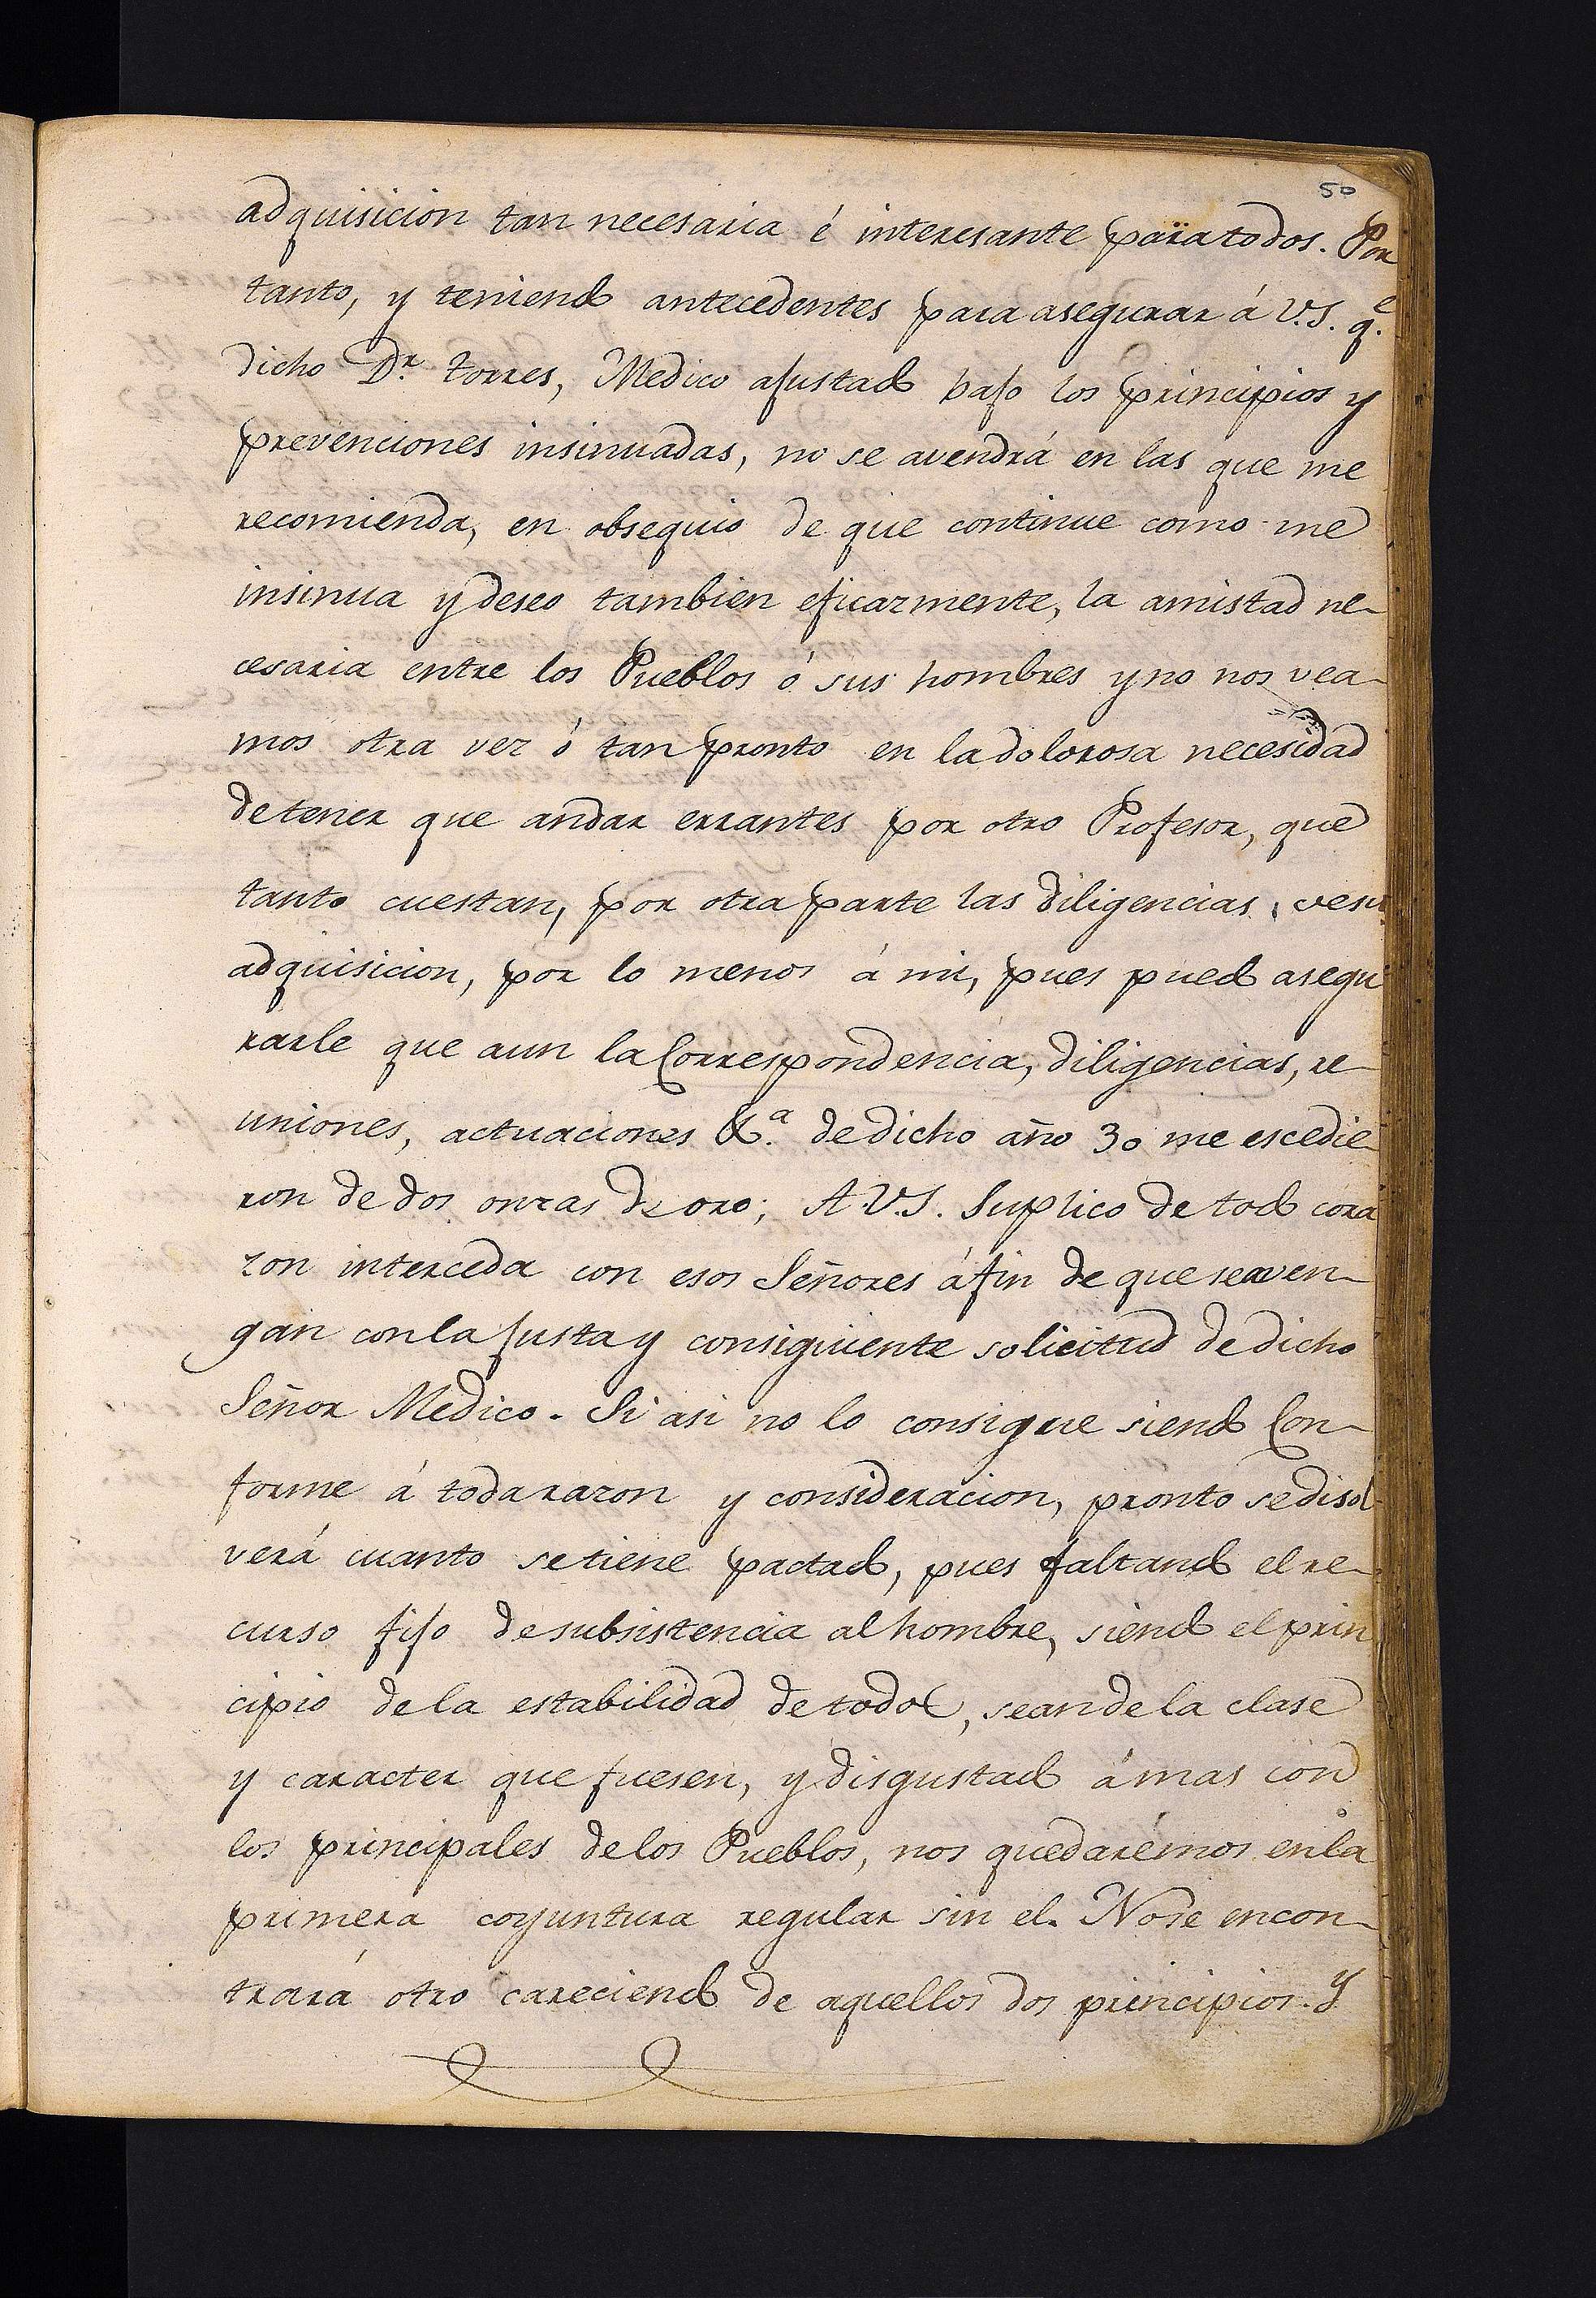 50
adquisicion tan necesaria é interesante para todos. Por
tanto, y teniendo antecedentes para asegurar á V.S. q.e
dicho Dr. Torres, Medico ajustado bajo los principios y
prevenciones insinuadas, no se avendrá en las que me
recomienda, en obsequio de que continue como me
insinua y deseo tambien eficazmente, la amistad ne-
cesaria entre los Pueblos ó sus hombres y no nos vea-
mos otra vez ó tan pronto en la dolorosa necesidad
de tener que andar errantes por otro Profesor, que
tanto cuestan, por otra parte las diligencias, de su
adquisicion, por lo menos á mi, pues puedo asegu
rarle que aun la Correspondencia, diligencias, re-
uniones, actuaciones &.a de dicho año 30 me escedie-
ron de dos onzas de oro; A V.S. Suplico de todo cora
zon interceda con esos Señores á fin de que se aven-
gan con la justa y consiguiente solicitud de dicho
Señor Medico. Si asi no lo consigue siendo Con-
forme á toda razon y consideracion, pronto se disol
verá cuanto se tiene pactado, pues faltando el re-
curso fijo de subsistencia al hombre, siendo el prin
cipio de la estabilidad de todos, sean de la clase
y caracter que fuesen, y disgustado á mas con
los principales de los Pueblos, nos quedarémos en la
primera coyuntura regular sin el. No se encon-
trará otro careciendo de aquellos dos principios. Y